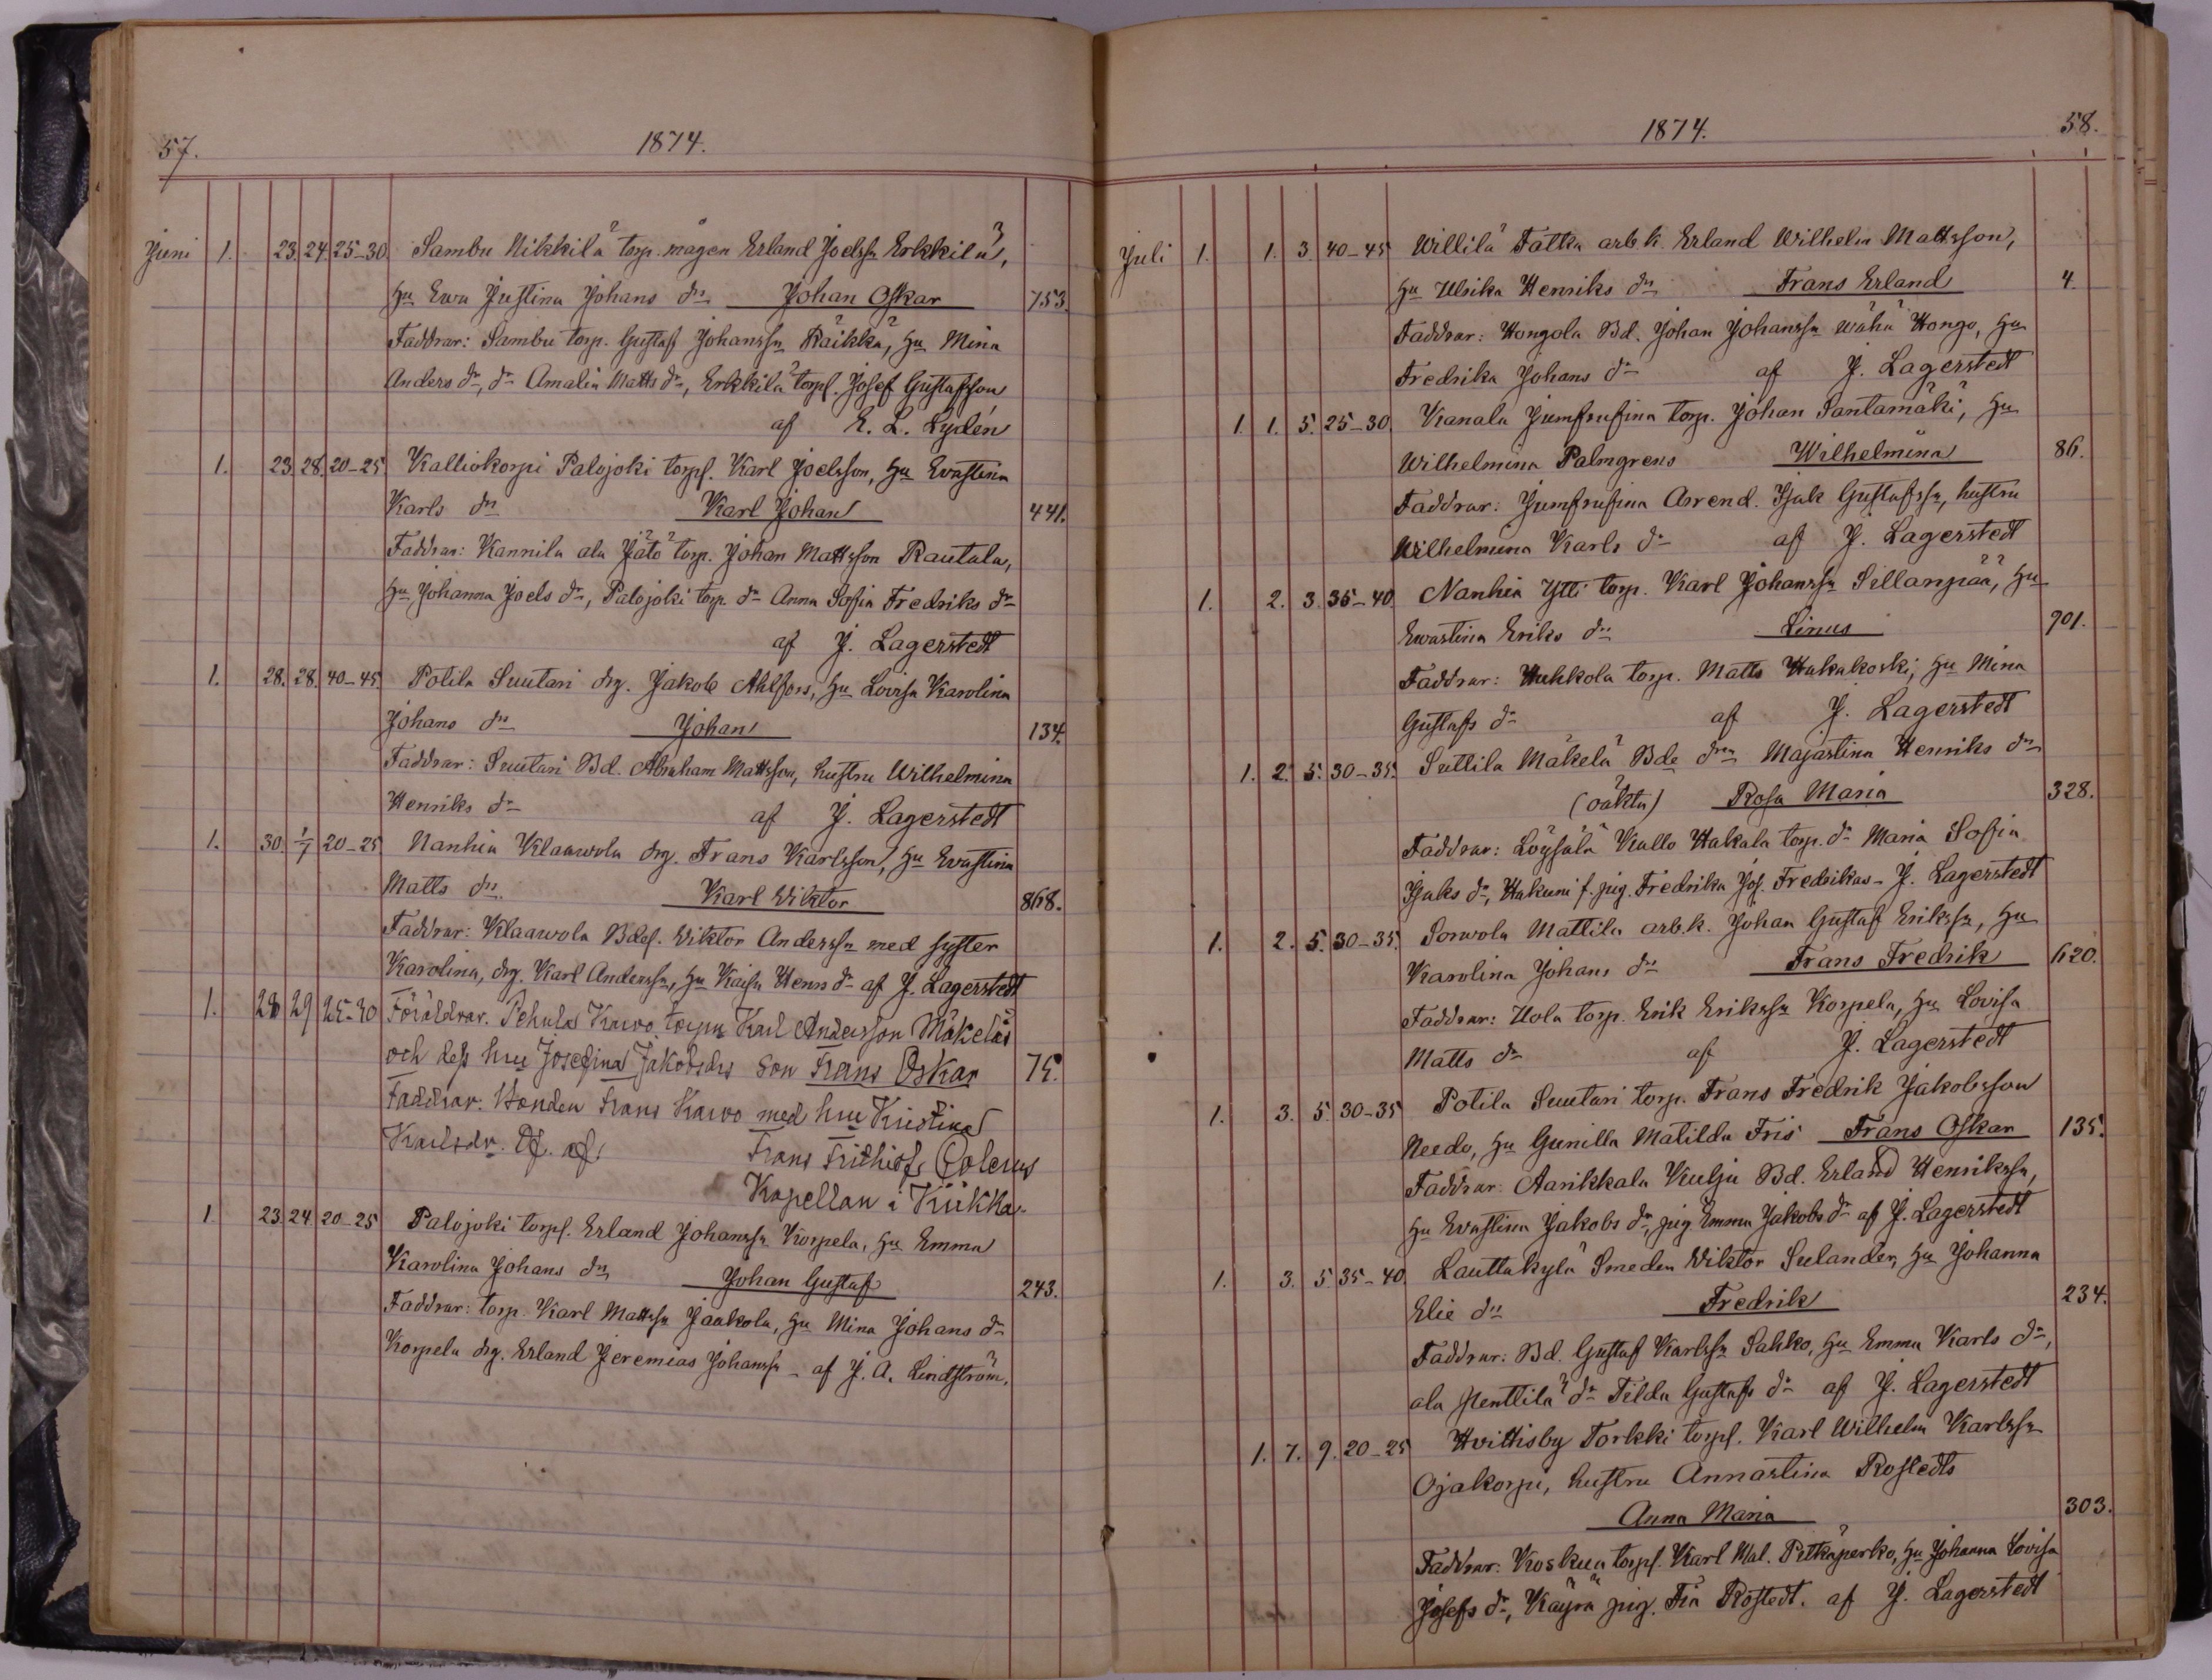 57. 1874.
Juni 1. 23. 24. 25-30. Sambu Nikkilä torp. mågen Erland Joelssn Erkkilä,
Hu Ewa Justina Johans dr Johan Oskar 753.
Faddrar: Sambu torp. Gustaf Johanssn Räikkä, Hu Mina
Anders dr, dr Amalia Matts dr, Erkkilä torps. Josef Gustafsson
af E. L. Lydén
1. 23. 28. 20-25 Kalliokorpi Palojoki torps. Karl Joelsson, Hu Evastina
Karls dr Karl Johan 441.
Faddrar: Kannila ala Jätö torp. Johan Mattsson Rautala,
Hu Johanna Joels dr, Palojoki torp. dr Anna Sofia Fredriks dr
af J. Lagerstedt
1. 28. 28. 40-45 Potila Suutari drg. Jakob Ahlfors, Hu Lovisa Karolina
Johans dr Johan 134.
Faddrar: Suutari Bd. Abraham Mattsson, hustru Wilhelmina
Henriks dr af J. Lagerstedt
1. 30. 1/7 20-25 Nanhia Klaawola drg. Frans Karlsson, Hu Evastina
Matts dr. Karl Viktor 868.
Faddrar: Klaawola Bdes. Viktor Anderssn med syster
Karolina, drg. Karl Anderssn, Hu Kaisa Henrs dr af J. Lagerstedt
1. 28 29 25-30 Föräldrar. Pehula Karvo torpn Karl Andersson Mäkelä
och dess hru Josefina Jakobsdr son Frans Oskar 75.
Faddrar: Bonden Frans Karvo med hru Kristina
Karlsdr. Df. af. Frans Frithiof Colerus
Kapellan i Kiikka.
1. 23. 24. 20-25 Palojoki torps. Erland Johanssn Korpela, Hu Emma
Karolina Johans dr Johan Gustaf 243.
Faddrar: torp. Karl Mattssn Jaakola, Hu Mina Johans dr
Korpela drg. Erland Jeremias Johanssn - af J. A. Lindström.
1874. 58.
Juli 1. 1. 3. 40-45 Willilä Fatka arb.k. Erland Wilhelm Mattsson,
Hu Ulrika Henriks dr Frans Erland 4.
Faddrar: Hongola Bd. Johan Johanssn wähä Hongo, Hu
Fredrika Johans dr af J. Lagerstedt
1. 1. 5. 25-30. Kanala Jumfrufina torp. Johan Santamäki, Hu
Wilhelmina Palmgrens Wilhelmina 86.
Faddrar: Jumfrufina Arrend. Isak Gustafssn, hustru
Wilhelmina Karls dr af J. Lagerstedt
1. 2. 3. 35-40. Nanhia Ylli torp. Karl Johanssn Sillanpää, Hu
Ewastina Eriks dr Linus 901.
Faddrar: Huhkola torp. Matts Hakakoski, Hu Mina
Gustafs dr af J. Lagerstedt
1. 2. 5. 30-35. Suttila Mäkelä Bde drn Majastina Henriks dr
(oäkta) Rosa Maria 328.
Faddrar: Löysälä Kallo Hakala torp. dr Maria Sofia
Isaks dr, Hakuni f. pig. Fredrika Jos. Fredrikas - J. Lagerstedt
1. 2. 5. 30-35. Sorwola Mattila arb.k. Johan Gustaf Erikssn, Hu
Karolina Johans dr Frans Fredrik 620.
Faddrar: Uola torp. Erik Erikssn Korpela, Hu Lovisa
Matts dr af J. Lagerstedt
1. 3. 5. 30-35 Potila Suutari torp. Frans Fredrik Jakobsson
Needo, Hu Gunilla Matilda Fris Frans Oskar 135.
Faddrar: Aarikkala Kulju Bd. Erland Henrikssn,
Hu Evastina Jakobs dr, pig Emma Jakobs dr af J. Lagerstedt
1. 3. 5. 35-40. Lauttakylä Smeden Viktor Sulander, Hu Johanna
Elie dr Fredrik 234.
Faddrar: Bd. Gustaf Karlssn Sahko, Hu Emma Karls dr,
ala Penttilä dr Tilda Gustafs dr af J. Lagerstedt
1. 7. 9. 20-25 Hvittisby Torkki torps. Karl Wilhelm Karlssn
Ojakorpi, hustru Annastina Rostedts
Anna Maria 303.
Faddrar: Koskua torps. Karl Mal. Pitkäperko, Hu Johanna Lovisa
Josefs dr, Käyrä pig. Fia Rostedt. af J. Lagerstedt